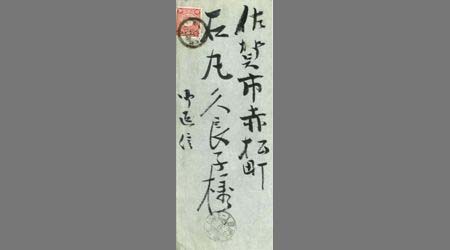 佐賀市赤松町
石丸久良子様
御返信